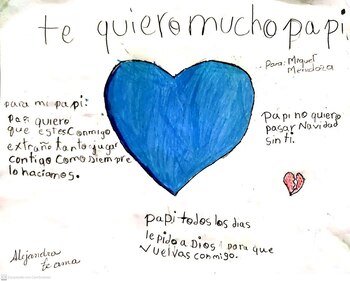 te quiero mucho papi.
Para: Miguel
Mendoza
para mi papi:
papi quiero
que estes conmigo
extraño tanto jugar
contigo como siempre
lo hacíamos.
Papi no quiero
pasar Navidad
sin ti.
papi todos los dias
le pido a Dios para que
vuelvas conmigo.
Alejandra
te ama